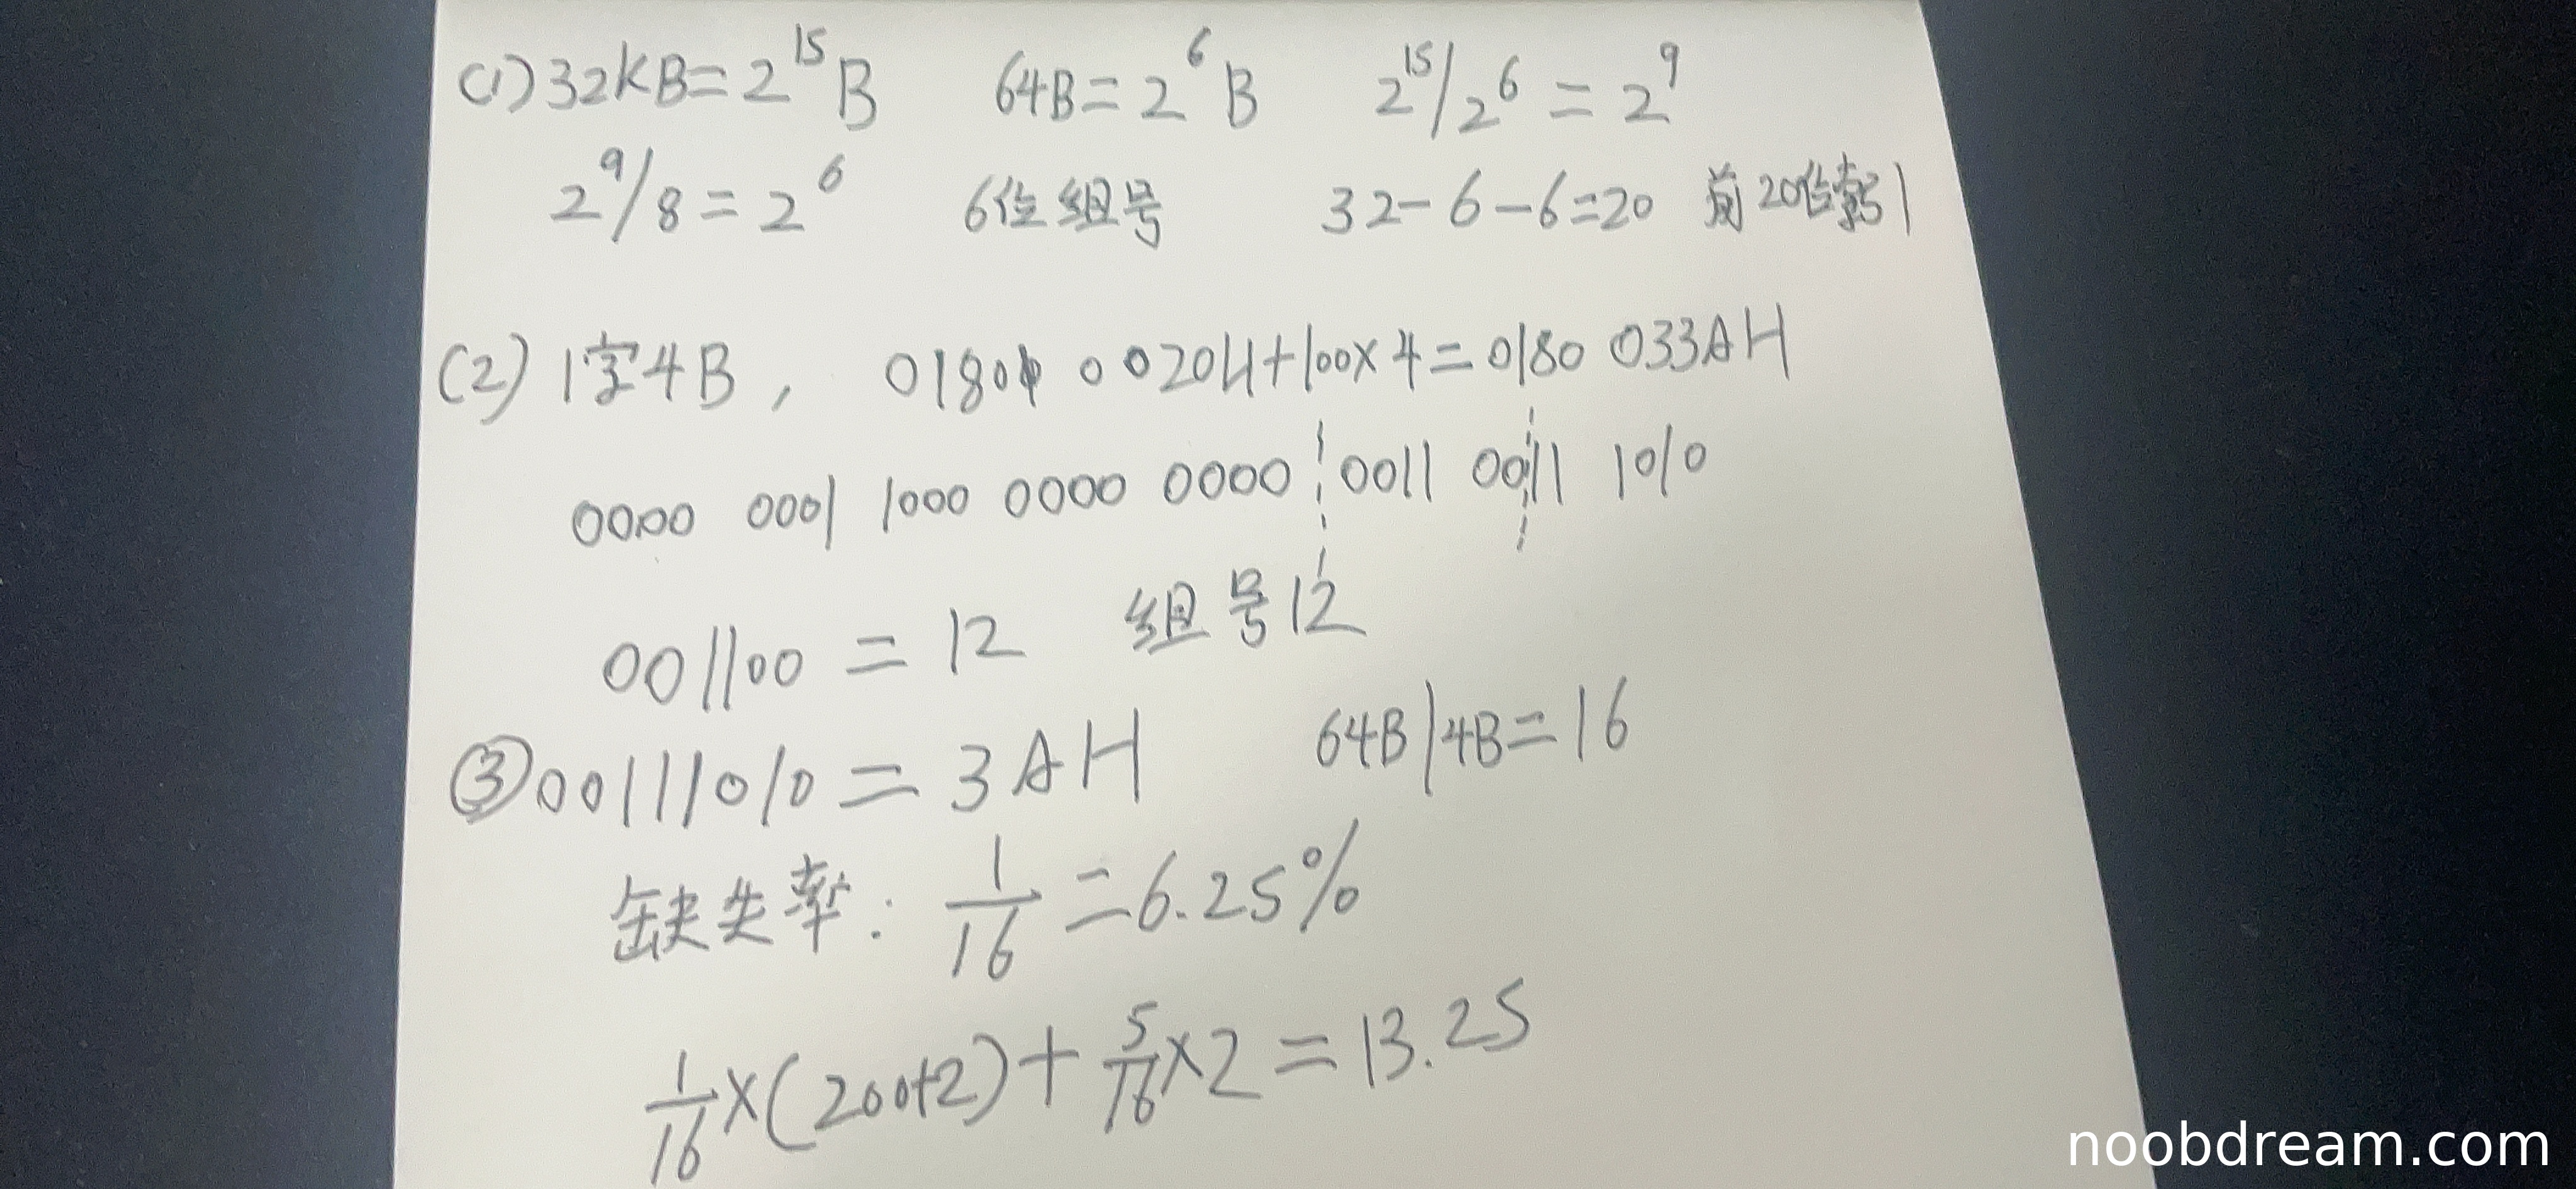 (1) 32KB=2^15 B 64B=2^6 B 2^15/2^6=2^9
2^9/8=2^6 6位组号 32-6-6=20 前20位索引
(2) 1字4B, 0180 0020H+100×4=0180 033AH
0000 0001 1000 0000 0000 0011 0011 1010
001100=12 组号12
③00111010=3AH 64B/4B=16
缺失率: 1/16=6.25%
1/16×(200+2)+5/16×2=13.25
noobdream.com